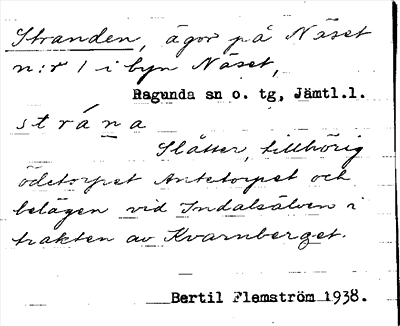 Stranden, ägor på Näset
n:r 1 i byn Näset,
Ragunda sn o. tg, Jämtl.l.
strána
Slåtter, tillhörig
ödetorpet Antetorpet och
belägen vid Indalsälven i
trakten av Kvarnberget.
Bertil Flemström 1938.